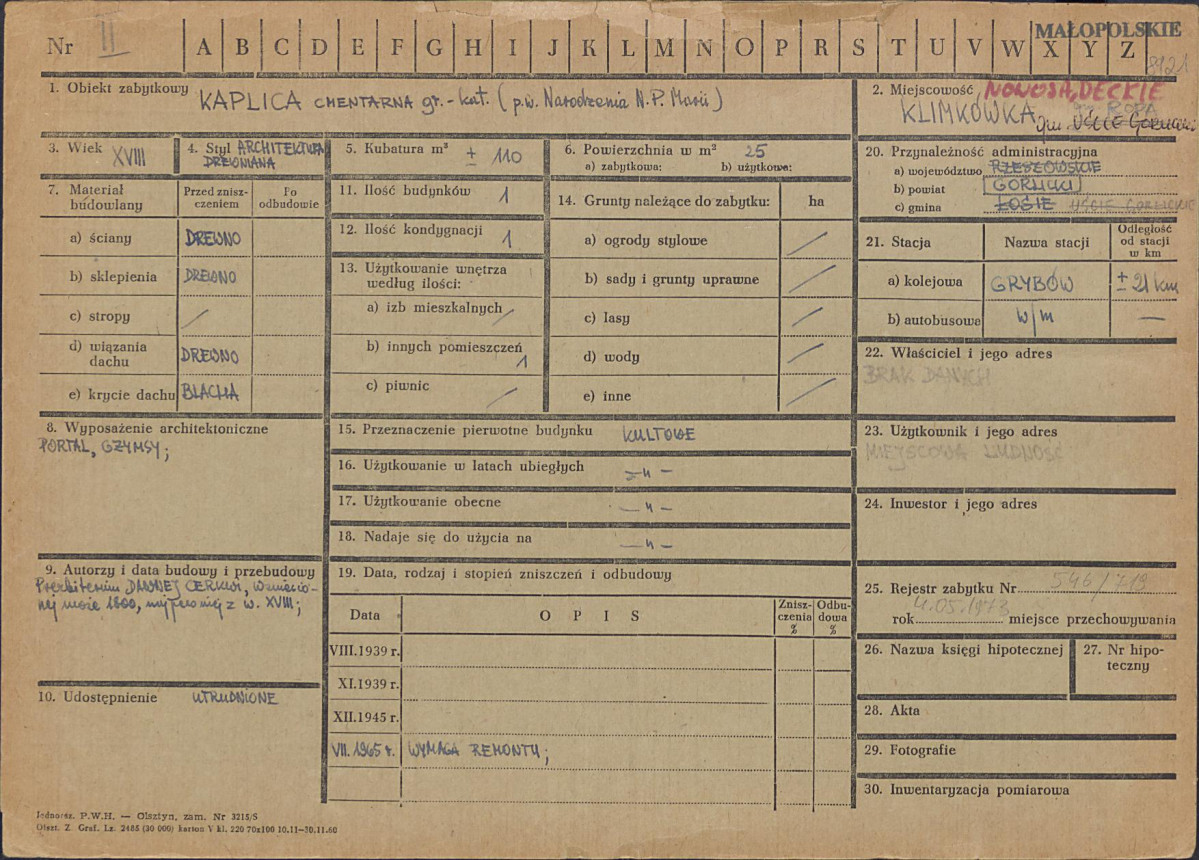 MAŁOPOLSKIE
Nr II A B C D E F G H I J K L M N O P R S T U V W X Y Z
8421
1. Obiekt zabytkowy KAPLICA CMENTARNA gr.-kat. (p.w. Narodzenia N.P. Marii)
2. Miejscowość NOWOSĄDECKIE
KLIMKÓWKA gm. ROPA
gm. UŚCIE GORLICKIE
3. Wiek XVIII
4. Styl ARCHITEKTURA
DREWNIANA
5. Kubatura m³ ± 110
6. Powierzchnia w m² 25
a) zabytkowa: b) użytkowa:
7. Materiał
budowlany
Przed znisz-
czeniem
Po
odbudowie
a) ściany DREWNO
b) sklepienia DREWNO
c) stropy /
d) wiązania
dachu DREWNO
e) krycie dachu BLACHA
8. Wyposażenie architektoniczne
PORTAL, GZYMSY;
9. Autorzy i data budowy i przebudowy
Prezbiterium DAWNEJ CERKWI, wzniesio-
nej może 1800,
z w. XVIII;
10. Udostępnienie UTRUDNIONE
11. Ilość budynków 1
12. Ilość kondygnacji 1
13. Użytkowanie wnętrza
według ilości:
a) izb mieszkalnych /
b) innych pomieszczeń 1
c) piwnic /
14. Grunty należące do zabytku: ha
a) ogrody stylowe /
b) sady i grunty uprawne /
c) lasy /
d) wody /
e) inne /
15. Przeznaczenie pierwotne budynku KULTOWE
16. Użytkowanie w latach ubiegłych — " —
17. Użytkowanie obecne — " —
18. Nadaje się do użycia na — " —
19. Data, rodzaj i stopień zniszczeń i odbudowy
Data O P I S Znisz-
czenia
% Odbu-
dowa
%
VIII.1939 r.
XI.1939 r.
XII.1945 r.
VII. 1965 r. WYMAGA REMONTU;
20. Przynależność administracyjna
a) województwo RZESZOWSKIE
b) powiat GORLICKI
c) gmina ŁOSIE UŚCIE GORLICKIE
21. Stacja Nazwa stacji Odległość
od stacji
w km
a) kolejowa GRYBÓW ± 21 km
b) autobusowa w/m —
22. Właściciel i jego adres
BRAK DANYCH
23. Użytkownik i jego adres
MIEJSCOWA LUDNOŚĆ
24. Inwestor i jego adres
25. Rejestr zabytku Nr 546/79
rok 4.05.1973 miejsce przechowywania
26. Nazwa księgi hipotecznej
27. Nr hipo-
teczny
28. Akta
29. Fotografie
30. Inwentaryzacja pomiarowa
Jednorsz. P.W.H. — Olsztyn, zam. Nr 3215/S
Olszt. Z. Graf. Lz. 2485 (30 000) karton V kl. 220 70x100 10.11—30.11.60